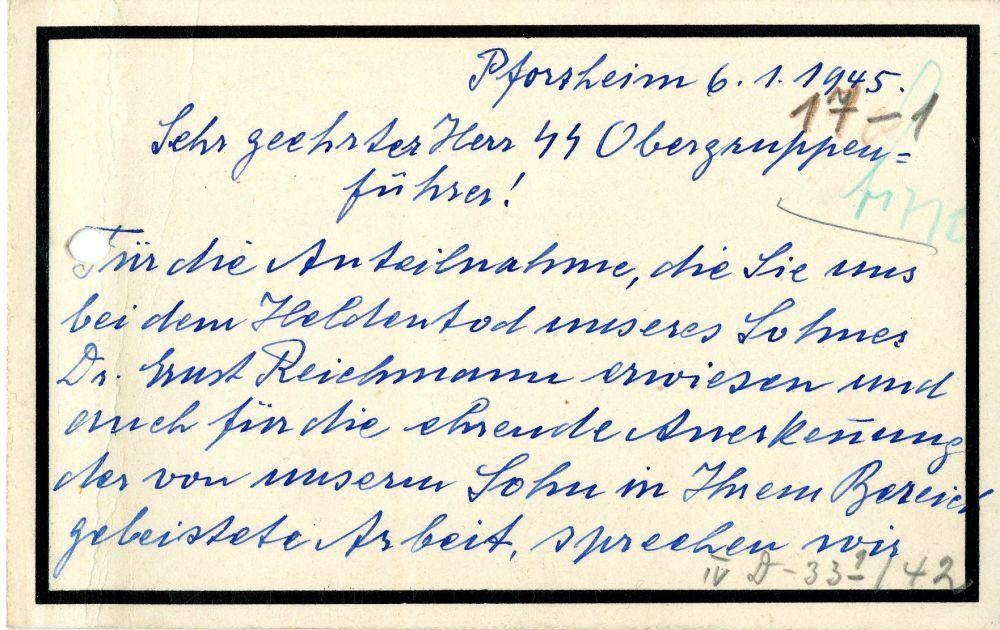 Pforzheim 6.1.1945.
17-1
Sehr geehrter Herr SS Obergruppen=
führer!
Für die Anteilnahme, die Sie uns
bei dem Heldentod unseres Sohnes
Dr. Ernst Reichmann erwiesen und
auch für die ehrende Anerkeñung
der von unserm Sohn in Ihrem Bereich
geleistete Arbeit, sprechen wir
IV D-33²/42